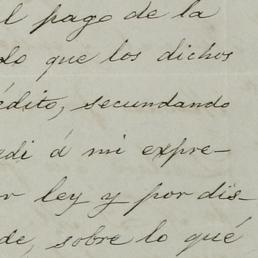 l pago de la
lo que los dichos
édito, secundando
edi á mi expre-
r ley y por dis-
de, sobre lo qué